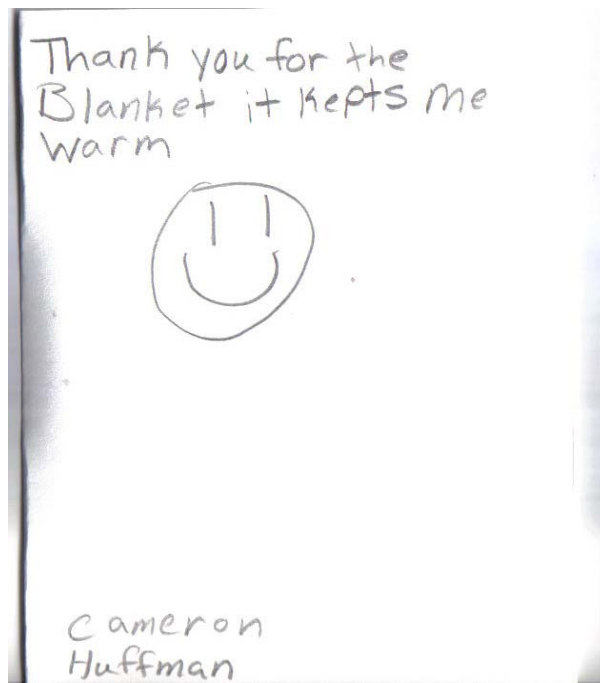 Thank you for the
Blanket it kepts me
warm
Cameron
Huffman